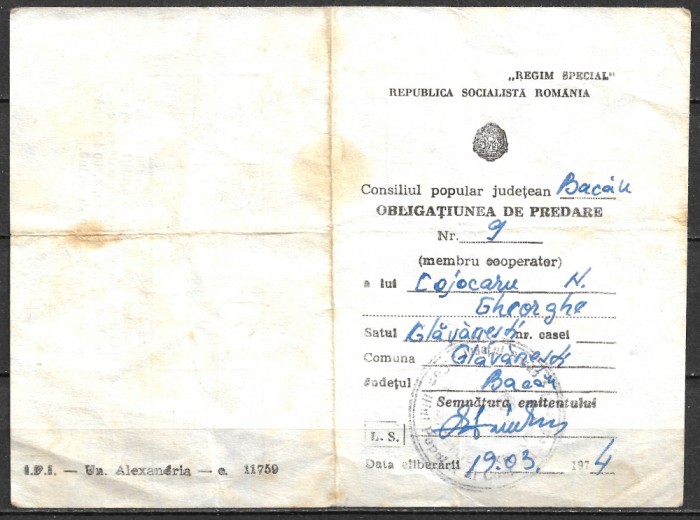 „REGIM SPECIAL"
REPUBLICA SOCIALISTĂ ROMÂNIA
Consiliul popular județean Bacău
OBLIGAȚIUNEA DE PREDARE
Nr. 9
(membru cooperator)
a lui Cojocaru N.
Gheorghe
Satul Glăvănești nr. casei
Comuna Glăvănești
Județul Bacău
Semnătura emitentului
L. S.
Data eliberării 19.03. 1974
I.P.I. — Un. Alexandria — c. 11759